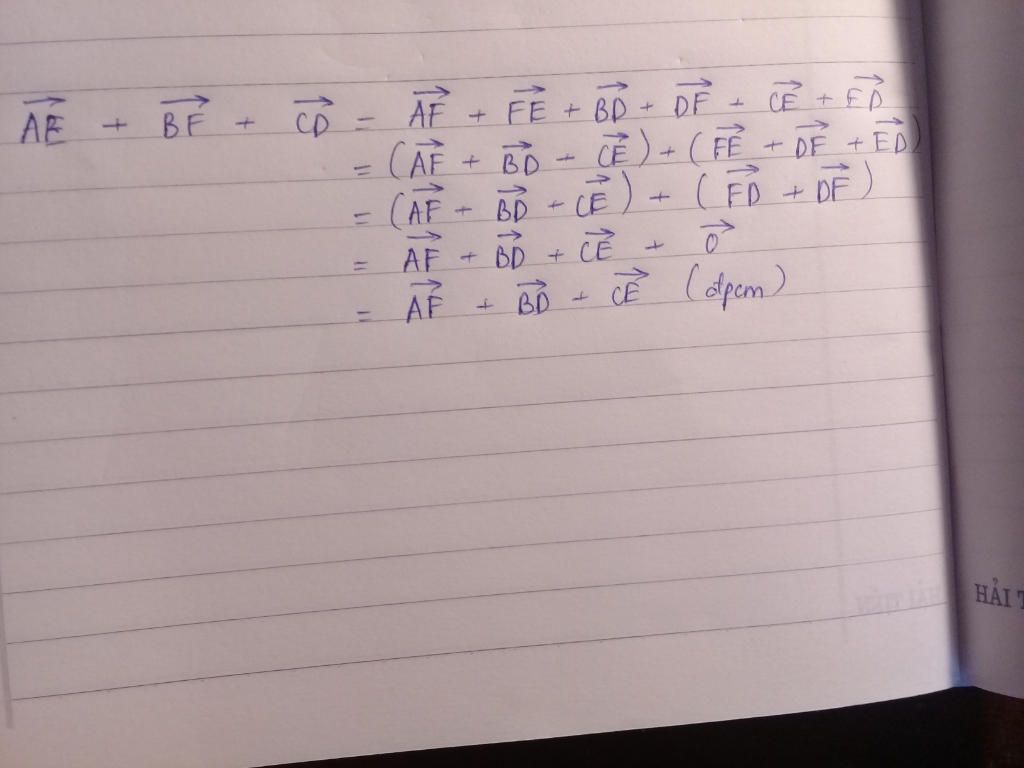 $\overrightarrow{AE} + \overrightarrow{BF} + \overrightarrow{CD} = \overrightarrow{AF} + \overrightarrow{FE} + \overrightarrow{BD} + \overrightarrow{DF} + \overrightarrow{CE} + \overrightarrow{ED}$
$= (\overrightarrow{AF} + \overrightarrow{BD} + \overrightarrow{CE}) + (\overrightarrow{FE} + \overrightarrow{DF} + \overrightarrow{ED})$
$= (\overrightarrow{AF} + \overrightarrow{BD} + \overrightarrow{CE}) + (\overrightarrow{FD} + \overrightarrow{DF})$
$= \overrightarrow{AF} + \overrightarrow{BD} + \overrightarrow{CE} + \overrightarrow{0}$
$= \overrightarrow{AF} + \overrightarrow{BD} + \overrightarrow{CE}$ (đpcm)
HẢI